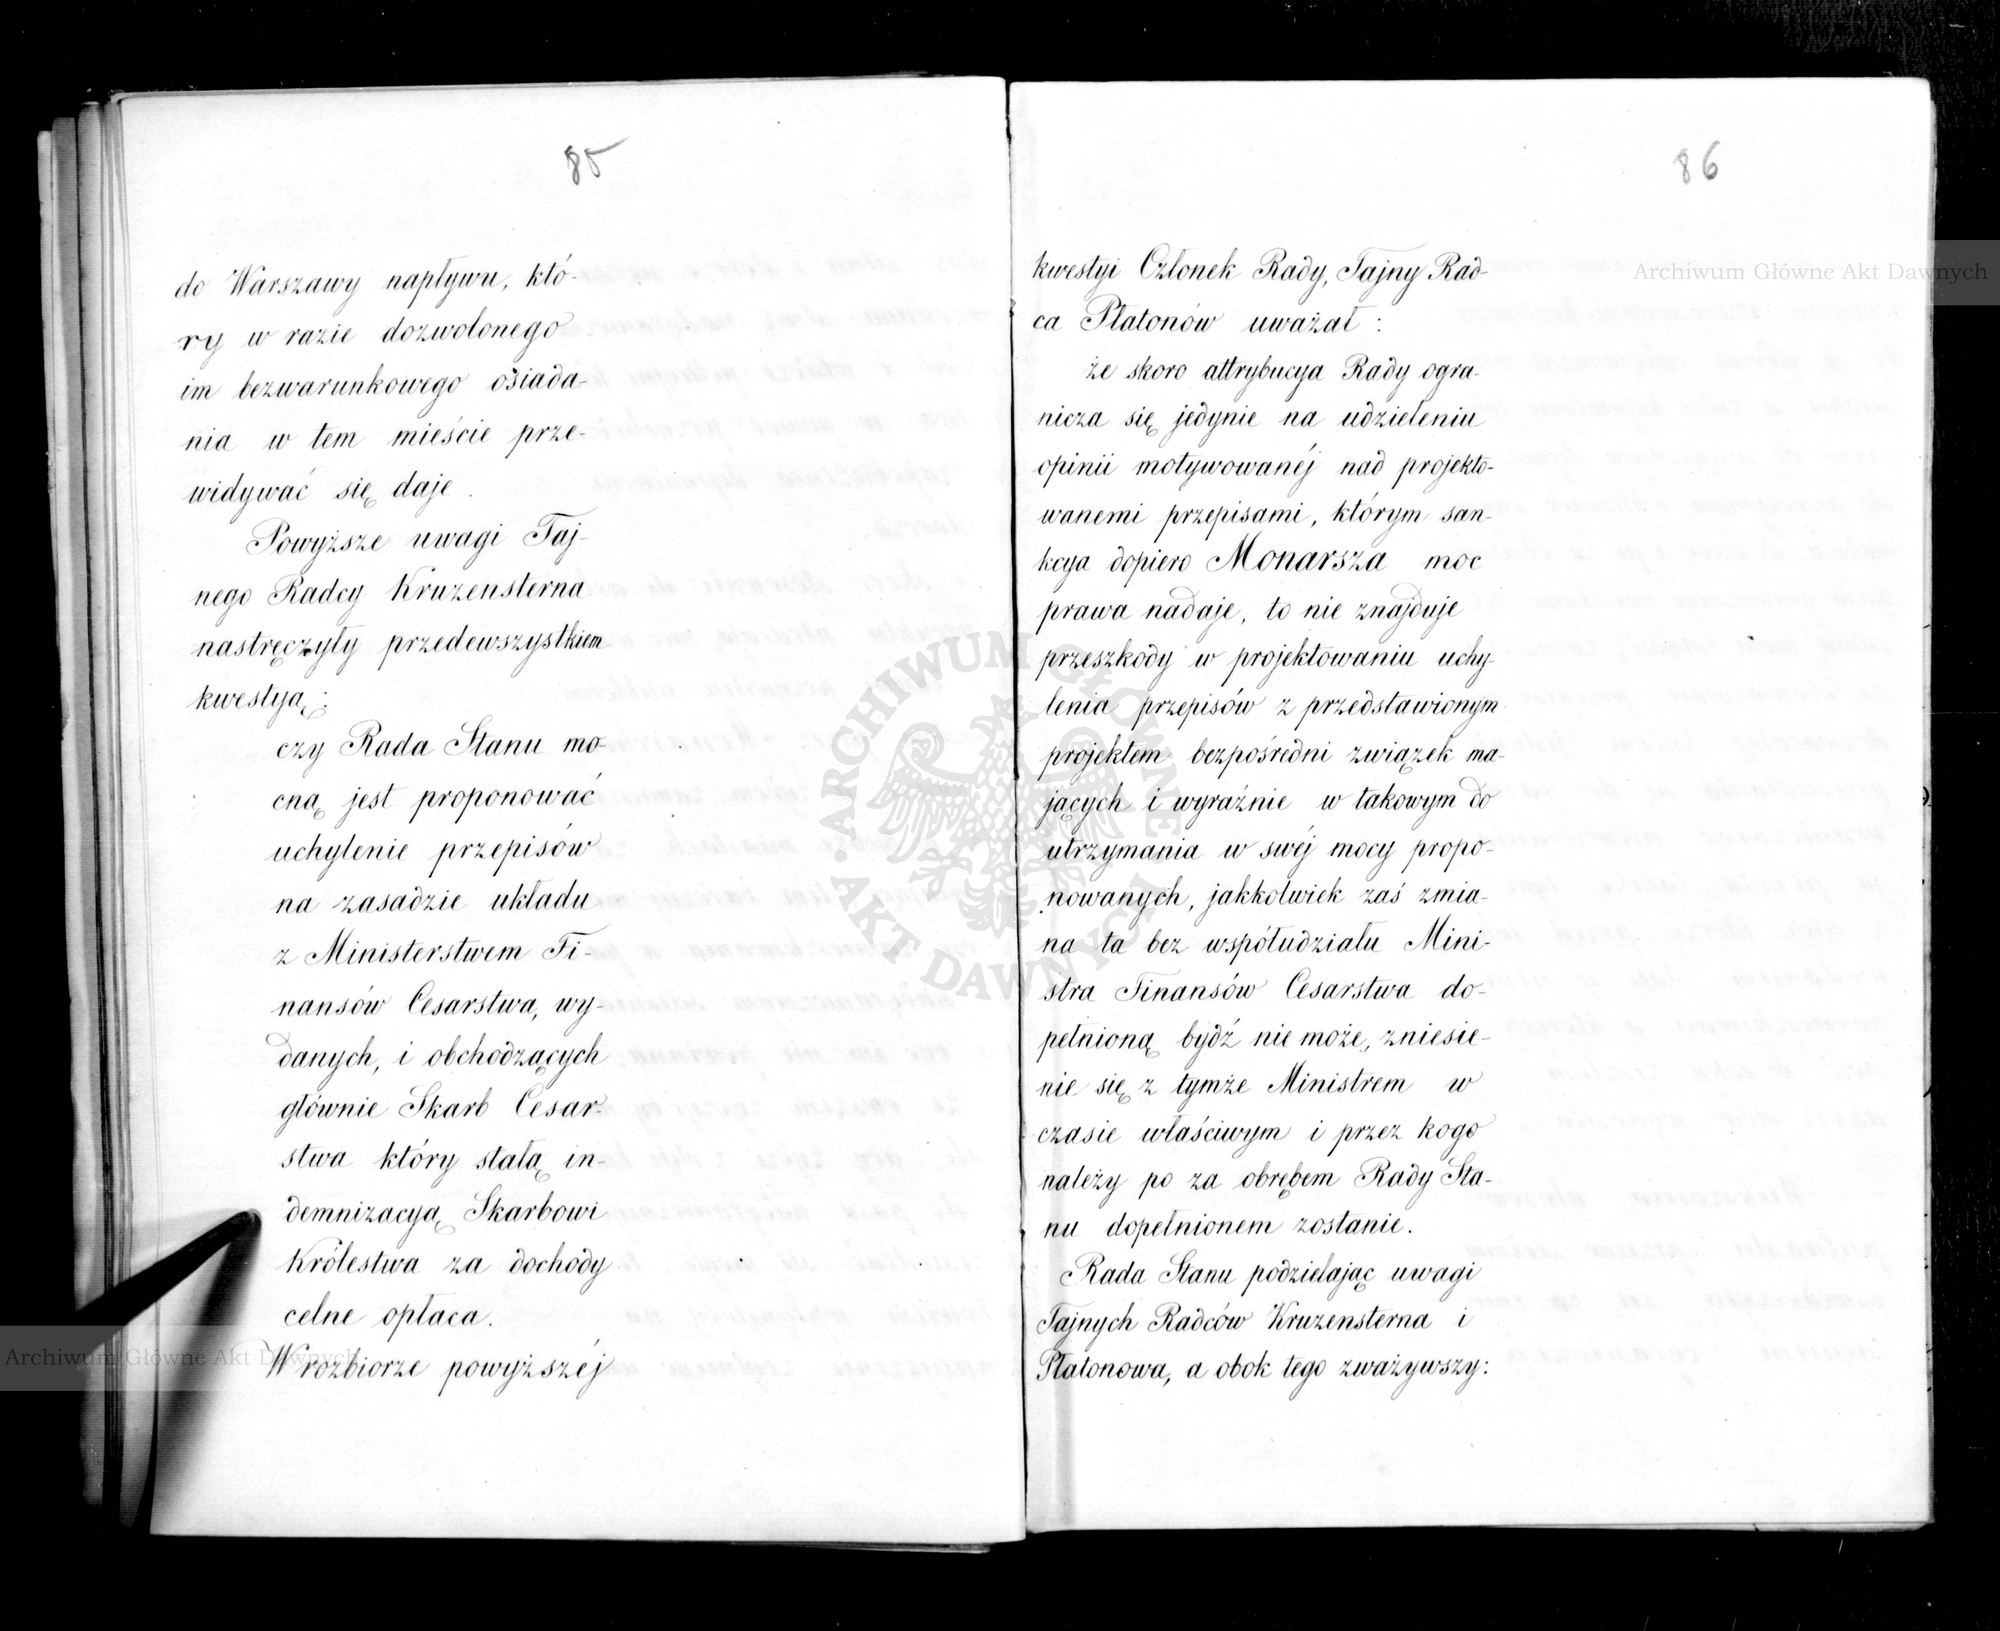 85
do Warszawy napływu, któ-
ry w razie dozwolonego
im bezwarunkowego osiada-
nia w tem mieście prze-
widywać się daje.
Powyższe uwagi Taj-
nego Radcy Kruzensterna
nastręczyły przedewszystkiem
kwestyą:
czy Rada Stanu mo-
cną jest proponować
uchylenie przepisów
na zasadzie układu
z Ministerstwem Fi-
nansów Cesarstwa, wy-
danych, i obchodzących
głównie Skarb Cesar-
stwa który stałą in-
demnizacyą Skarbowi
Królestwa za dochody
celne opłaca.
W rozbiorze powyższéj
86
kwestyi Członek Rady, Tajny Rad-
ca Płatonów uważał:
że skoro attrybucya Rady ogra-
nicza się jedynie na udzieleniu
opinii motywowanéj nad projekto-
wanemi przepisami, którym san-
kcya dopiero Monarsza moc
prawa nadaje, to nie znajduje
przeszkody w projektowaniu uchy-
lenia przepisów z przedstawionym
projektem bezpośredni związek ma-
jących i wyraźnie w takowym do
utrzymania w swéj mocy propo-
nowanych, jakkolwiek zaś zmia-
na ta bez współudziału Mini-
stra Finansów Cesarstwa do-
pełnioną bydź nie może, zniesie-
nie się z tymże Ministrem w
czasie właściwym i przez kogo
należy po za obrębem Rady Sta-
nu dopełnionem zostanie.
Rada Stanu podzielając uwagi
Tajnych Radców Kruzensterna i
Płatonowa, a obok tego zważywszy:
Archiwum Główne Akt Dawnych
ARCHIWUM GŁÓWNE
AKT DAWNYCH
Archiwum Główne Akt Dawnych